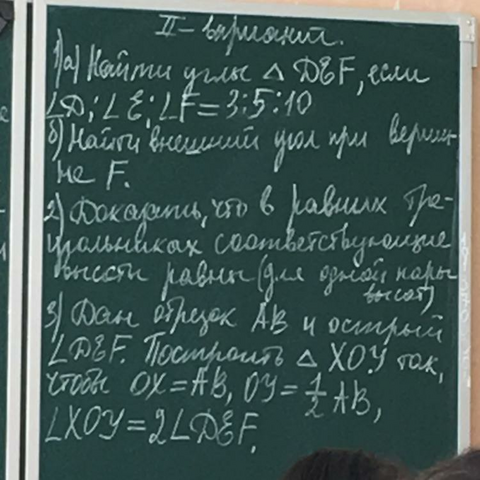 II - вариант.
1) а) Найти углы △ DEF, если
∠D:∠E:∠F=3:5:10
б) Найти внешний угол при верши-
не F.
2) Доказать, что в равных тре-
угольниках соответствующие
высоты равны (для одной пары
высот)
3) Дан отрезок AB и острый
∠DEF. Построить △ XOY так,
чтобы OX=AB, OY=1/2 AB,
∠XOY=2∠DEF.